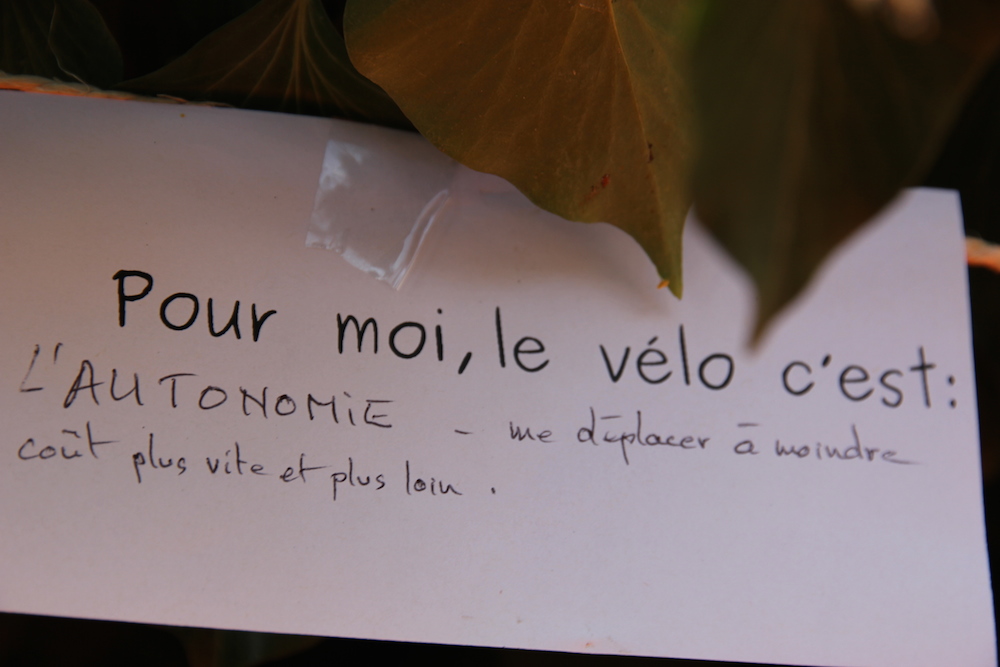 Pour moi, le vélo c'est:
L'AUTONOMiE - me déplacer à moindre
coût plus vite et plus loin .